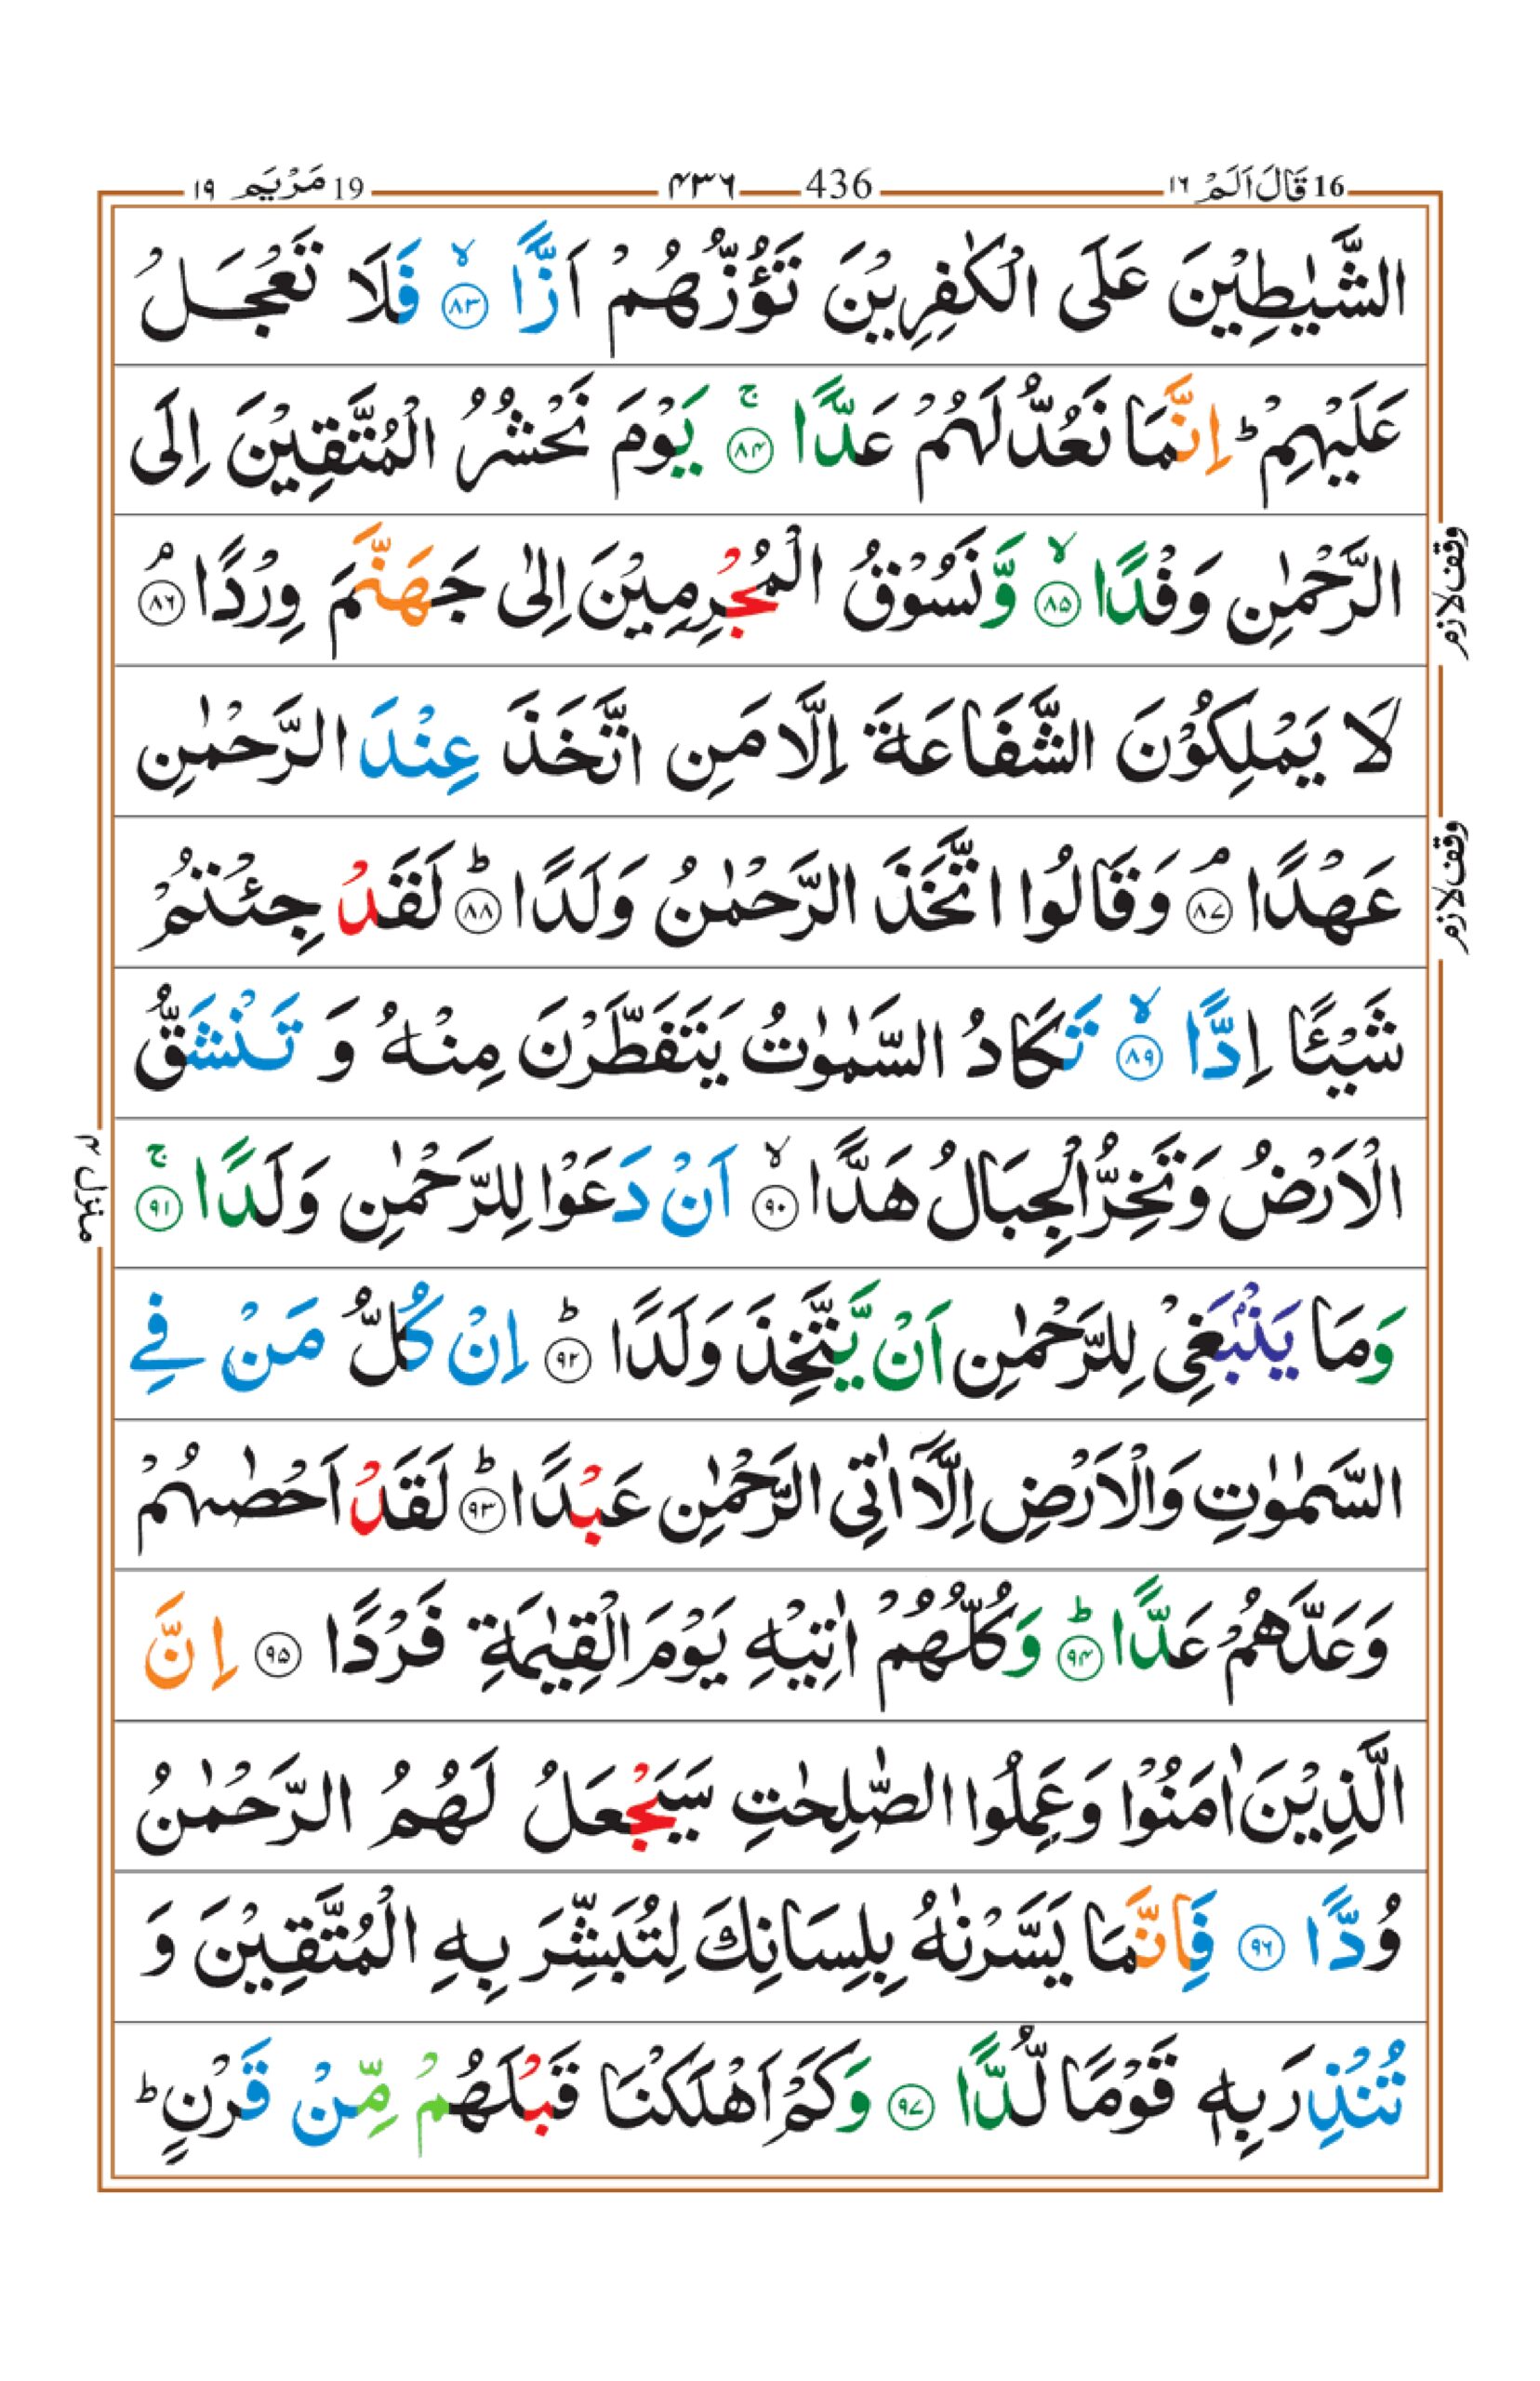 16 قَالَ اَلَمْ ١٦
436 ٤٣٦
19 مَرْيَم ١٩
الشَّيٰطِيْنَ عَلَى الْكٰفِرِيْنَ تَؤُزُّهُمْ اَزًّا ۙ‏﴿٨٣﴾ فَلَا تَعْجَلْ
عَلَيْهِمْ ؕ اِنَّمَا نَعُدُّ لَهُمْ عَدًّا ۚ‏﴿٨٤﴾ يَوْمَ نَحْشُرُ الْمُتَّقِيْنَ اِلَى
الرَّحْمٰنِ وَفْدًا ۙ‏﴿٨٥﴾ وَّنَسُوْقُ الْمُجْرِمِيْنَ اِلٰى جَهَنَّمَ وِرْدًا ۘ‏﴿٨٦﴾
وقف لازم
لَا يَمْلِكُوْنَ الشَّفَاعَةَ اِلَّا مَنِ اتَّخَذَ عِنْدَ الرَّحْمٰنِ
عَهْدًا ۘ‏﴿٨٧﴾ وَقَالُوا اتَّخَذَ الرَّحْمٰنُ وَلَدًا ؕ‏﴿٨٨﴾ لَقَدْ جِئْتُمْ
وقف لازم
شَيْئًا اِدًّا ۙ‏﴿٨٩﴾ تَكَادُ السَّمٰوٰتُ يَتَفَطَّرْنَ مِنْهُ وَ تَنْشَقُّ
الْاَرْضُ وَتَخِرُّ الْجِبَالُ هَدًّا ۙ‏﴿٩٠﴾ اَنْ دَعَوْا لِلرَّحْمٰنِ وَلَدًا ۚ‏﴿٩١﴾
منزل ٤
وَمَا يَنْۢبَغِىْ لِلرَّحْمٰنِ اَنْ يَّتَّخِذَ وَلَدًا ؕ‏﴿٩٢﴾ اِنْ كُلُّ مَنْ فِى
السَّمٰوٰتِ وَالْاَرْضِ اِلَّاۤ اٰتِى الرَّحْمٰنِ عَبْدًا ؕ‏﴿٩٣﴾ لَقَدْ اَحْصٰٮهُمْ
وَعَدَّهُمْ عَدًّا ؕ‏﴿٩٤﴾ وَكُلُّهُمْ اٰتِيْهِ يَوْمَ الْقِيٰمَةِ فَرْدًا ‏﴿٩٥﴾ اِنَّ
الَّذِيْنَ اٰمَنُوْا وَعَمِلُوا الصّٰلِحٰتِ سَيَجْعَلُ لَهُمُ الرَّحْمٰنُ
وُدًّا ‏﴿٩٦﴾ فَاِنَّمَا يَسَّرْنٰهُ بِلِسَانِكَ لِتُبَشِّرَ بِهِ الْمُتَّقِيْنَ وَ
تُنْذِرَ بِهٖ قَوْمًا لُّدًّا ‏﴿٩٧﴾ وَكَمْ اَهْلَكْنَا قَبْلَهُمْ مِّنْ قَرْنٍ ؕ